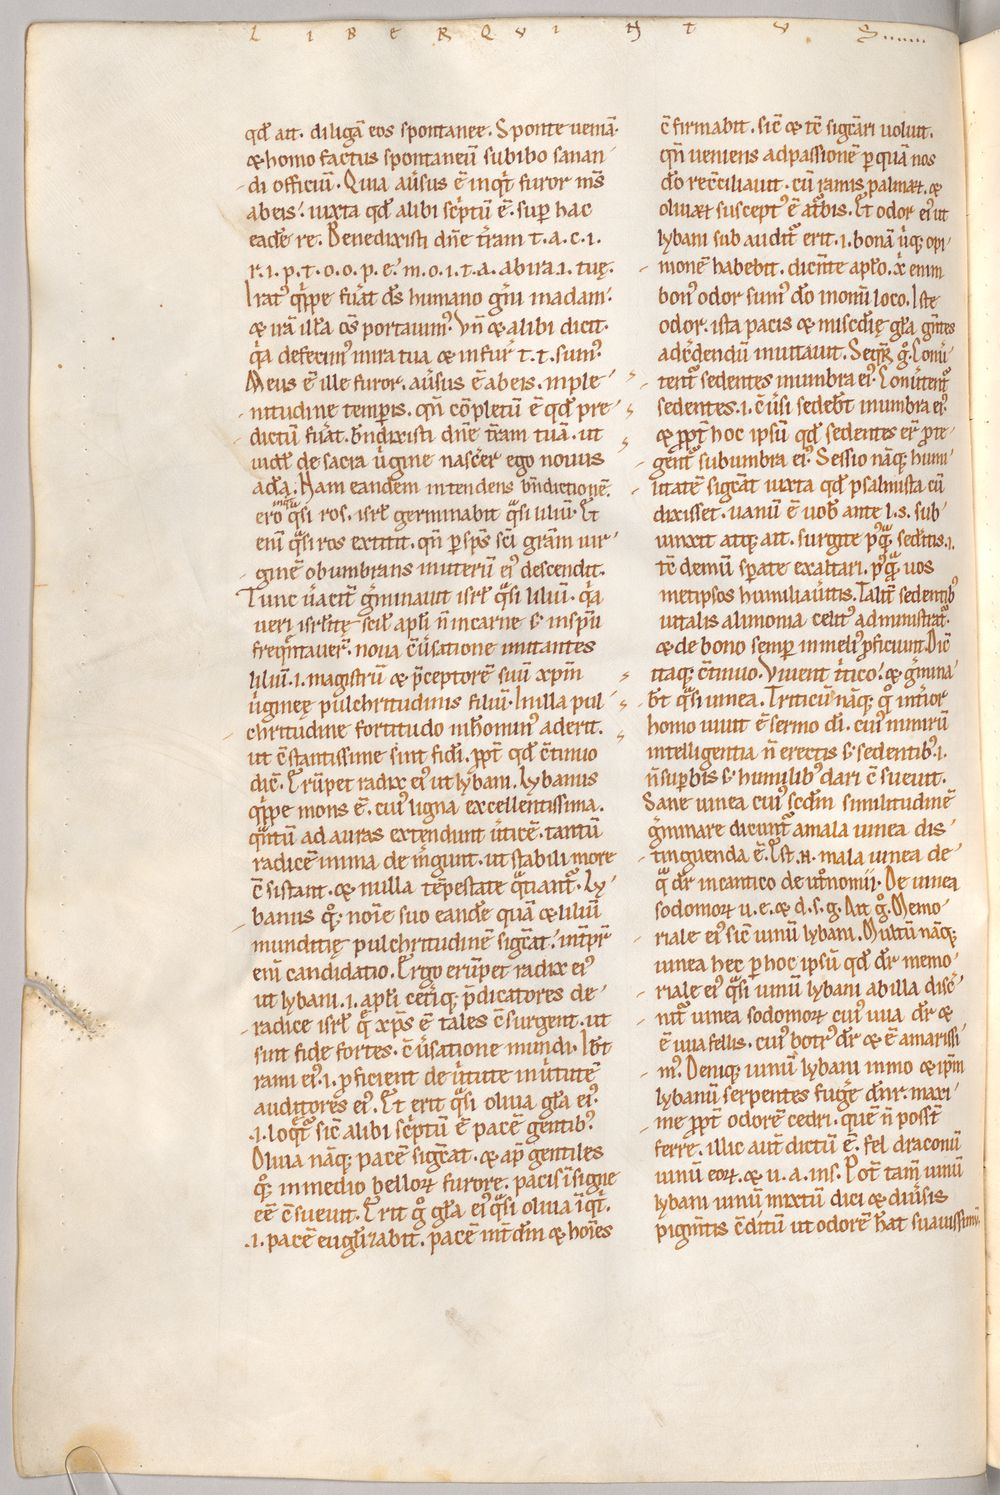 L I B E R Q V I N T V S
qđ ait. diligā eos spontanee. Sponte ueniā.
& homo factus spontaneū subibo sanan
di officiū. Quia auſus ē inqͥt furor mſ
abeis. iuxta qđ alibi scͥptū ē. sup hac
eadē re. Benedixisti dn̄e t̄ram t. a. c. i.
r. i. p. t. o. o. p. e. m. o. i. t. a. abira. i. tuę.
Iratꝰ qͥppe fuāt dſ humano gn̄i inadam.
& irā illā om̄ſ portauimꝰ. Vn̄ & alibi dicit.
qͥa defecimꝰ inira tua & infur̄ t. t. sumꝰ.
Meus ē ille furor. auſus ē abeis. inple
nitudine temporis. qn̄ cōpletū ē qđ pre
dictū fuāt. bn̄dixisti dn̄e t̄ram tuā. ut
uidel̄ de sacra uͥgine nascēr ego nouus
adā. Nam eandem intendens bn̄dictionē.
ero inqͥt qͣsi ros. isrl̄ germinabit qͣsi liliū. Et
eni qͣsi ros extitit. qn̄ p sps̄ sci grām uir
ginē obumbrans inuterū eiꝰ descendit.
Tunc uāciͭ gͥminauit isrl̄ qͣsi liliū. qͥa
ueri isrl̄itę scil̄ apl̄i n̄ incarne s; insp̄u
freqͥntauer̄. noua cūersatione imitantes
liliū. i. magistrū & p̄ceptorē suū xp̄m
uͥgineę pulchritudinis filiū. Inilla pul
chritudine fortitudo inhominꝰ aderit.
ut cōstantissime sint fidi. ppt̄ qđ c̄tinuo
dic̄. Erūpet radix eiꝰ ut lybani. Lybanus
qͥppe mons ē. cuiꝰ ligna excellentissima.
qͣntū ad auras extendunt uͥticē. tantū
radicē inima de mͥgunt. ut stabili more
c̄sistant. & nulla tēpestate qͣtiantͬ. Ly
banus qͦ; noīe suo eandē quā & liliū
munditię pulchritudinē sigc̄at. int̄pr̄
enī candidatio. Ergo erūpet radix eiꝰ
ut lybani. i. apl̄i cēt̄iq; p̄dicatores de
radice isrl̄ qͥ xp̄s ē tales c̄surgent. ut
sint fide fortes. c̄uͥsatione mundi. Ibūt
rami eiꝰ. i. pficient de uͥtute inuͥtutē
auditores eiꝰ. Et erit qͣsi oliua glā eiꝰ.
.i. loqͥtͬ sic̄ alibi scͥptū ē pacē gentibꝰ.
Oliua nāq; pacē sigc̄at. & ap̄ gentiles
qͦ; inmedio bellorꝝ furore. pacis īsigne
eē c̄sueuit. Erit gͦ glā eiꝰ qͣsi oliua īqͥt.
.i. pacē euglīzabit. pacē int̄ dm̄ & hoīes
c̄firmabit. sic̄ & tē sigc̄āri uoluit.
qn̄ ueniens adpassionē p quā nos
do rec̄ciliauit. cū ramis palmarꝝ. &
oliuarꝝ suscepꝰ ē atͬbis. Et odor eiꝰ ut
lybani sub auditͬ erit. i. bonā uͥq; opi
nionē habebit. dicn̄te apl̄o. x̄ enim
bonꝰ odor sumꝰ do inomī loco. Iste
odor. ista pacis & miscd̄ię glā gn̄tes
adc̄dendū inuitauit. Seqͥtͬ gͦ. Conuͥ
tentͬ sedentes inumbra eiꝰ. Conuͥtentͬ
sedentes. i. c̄uͥsi sedebūt inumbra eiꝰ.
& ppt̄ hoc ipsū qđ sedentes er̄ prote
gentͬ subumbra eiꝰ. Sessio nāq; humi
litatē sigc̄at iuxta qđ psalmista cū
dixisset. uanū ē uob̄ ante l. s. sub
iunxit atq; ait. surgite pꝰqͣ sedͥtis. i.
tē demū sperate exaltari. pꝰqͣ uos
metipsos humiliauͥtis. Talit̄ sedentibꝰ
uitalis alimonia celitꝰ administratͬ.
& de bono semp inmeliꝰ pficiunt. Dic̄
itaq; c̄tinuo. Viuent tͥtico. & gͥmina
būt qͣsi uinea. Triticū nāq; qͦ intͥior
homo uiuit ē sermo di. cuiꝰ nimirū
intelligentia n̄ erectis s; sedentibꝰ. i.
n̄ supbis s; humilibꝰ dari c̄sueuit.
Sane uinea cuiꝰ scd̄m similitudinē
gͥminare dicuntͬ amala uinea dis
tinguenda ē. Est .n. mala uinea de
qͣ dr̄ incantico deutͦnomii. De uinea
sodomorꝝ u. e. & d. s. g. Ait gͦ. Memo
riale eiꝰ sic̄ uinū lybani. Multū nāq;
uinea hec p hoc ipsū qđ dr̄ memo
riale eiꝰ qͣsi uinū lybani abilla disc̄
nitͬ uinea sodomorꝝ cuiꝰ uua dr̄ &
ē uua fellis. cuiꝰ botrꝰ dr̄ & ē amarissi
mꝰ. Deniq; uinū lybani inmo & ip̄m
lybanū serpentes fugē dn̄r. maxi
me ppt̄ odorē cedri. quē n̄ poss̄t
ferre. illic aut̄ dictū ē. fel draconū
uinū eorꝝ. & u. a. ins. Pot̄ tam̄ uinū
lybani uinū mixtū dici & diuͥsis
pigmn̄tis c̄ditū ut odorē hāt suauissimū.